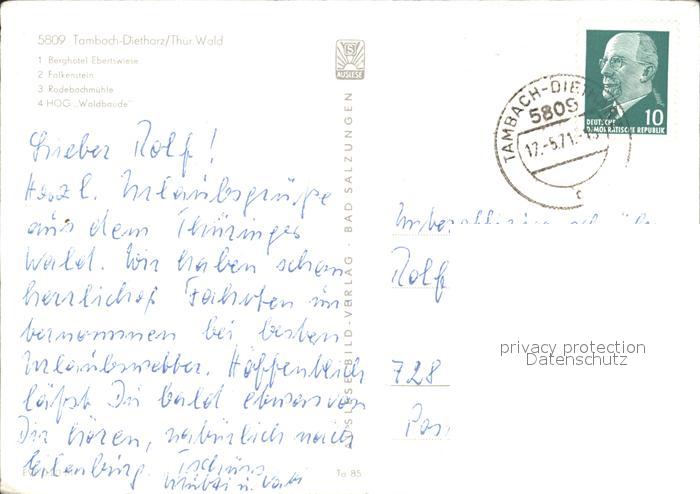 5809 Tambach-Dietharz/Thür. Wald
1 Berghotel Ebertswiese
2 Falkenstein
3 Rodebachmühle
4 HOG „Waldbaude"
AUSLESE
BILD-VERLAG · BAD SALZUNGEN
DEUTSCHE
DEMOKRATISCHE REPUBLIK
10
TAMBACH-DIETH
5809
17.-5.71.-
c
Lieber Rolf!
Herzl. Urlaubsgrüße
aus dem Thüringer
Wald. Wir haben schon
herrliche Fahrten un
ternommen bei bestem
Urlaubswetter. Hoffentlich
läßt Du bald etwas von
Dir hören, natürlich nach
Eilenburg. Tschüss
Mutti u. Vati
Unteroffizier
Rolf
728
Pos
privacy protection
Datenschutz
Ta 85